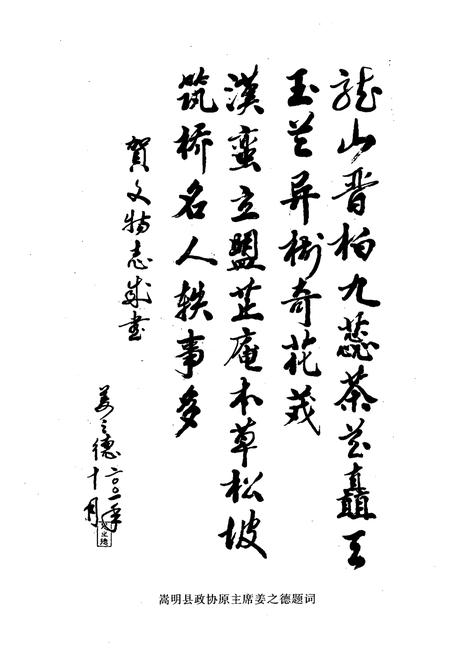 龙山晋柏九蕊茶花矗天
玉兰异树奇花茂
汉蛮立盟芷庵本草松坡
筑桥名人轶事多
贺文物志成书
姜之德二〇〇一年
十月
姜之德
嵩明县政协原主席姜之德题词